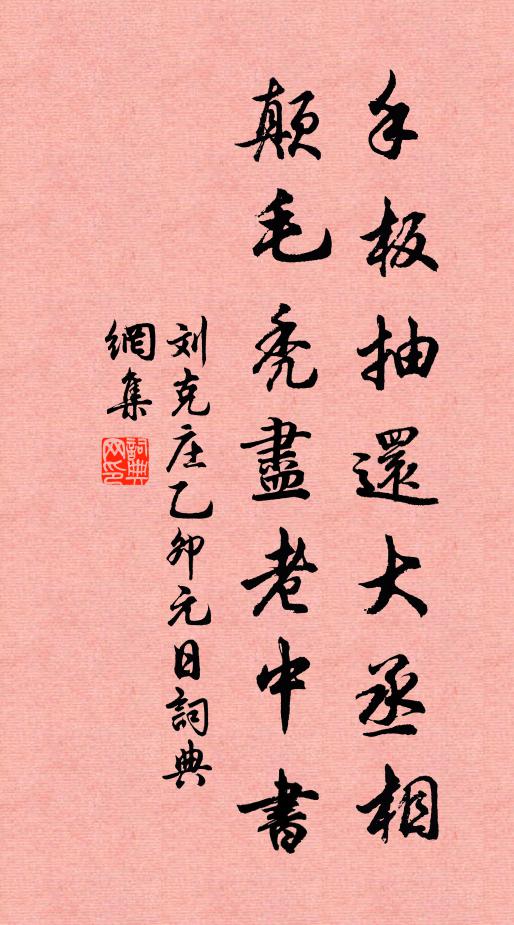 手板抽還大丞相
顛毛禿盡老中書
刘克庄乙卯元日詞典
網集
詞典
网印